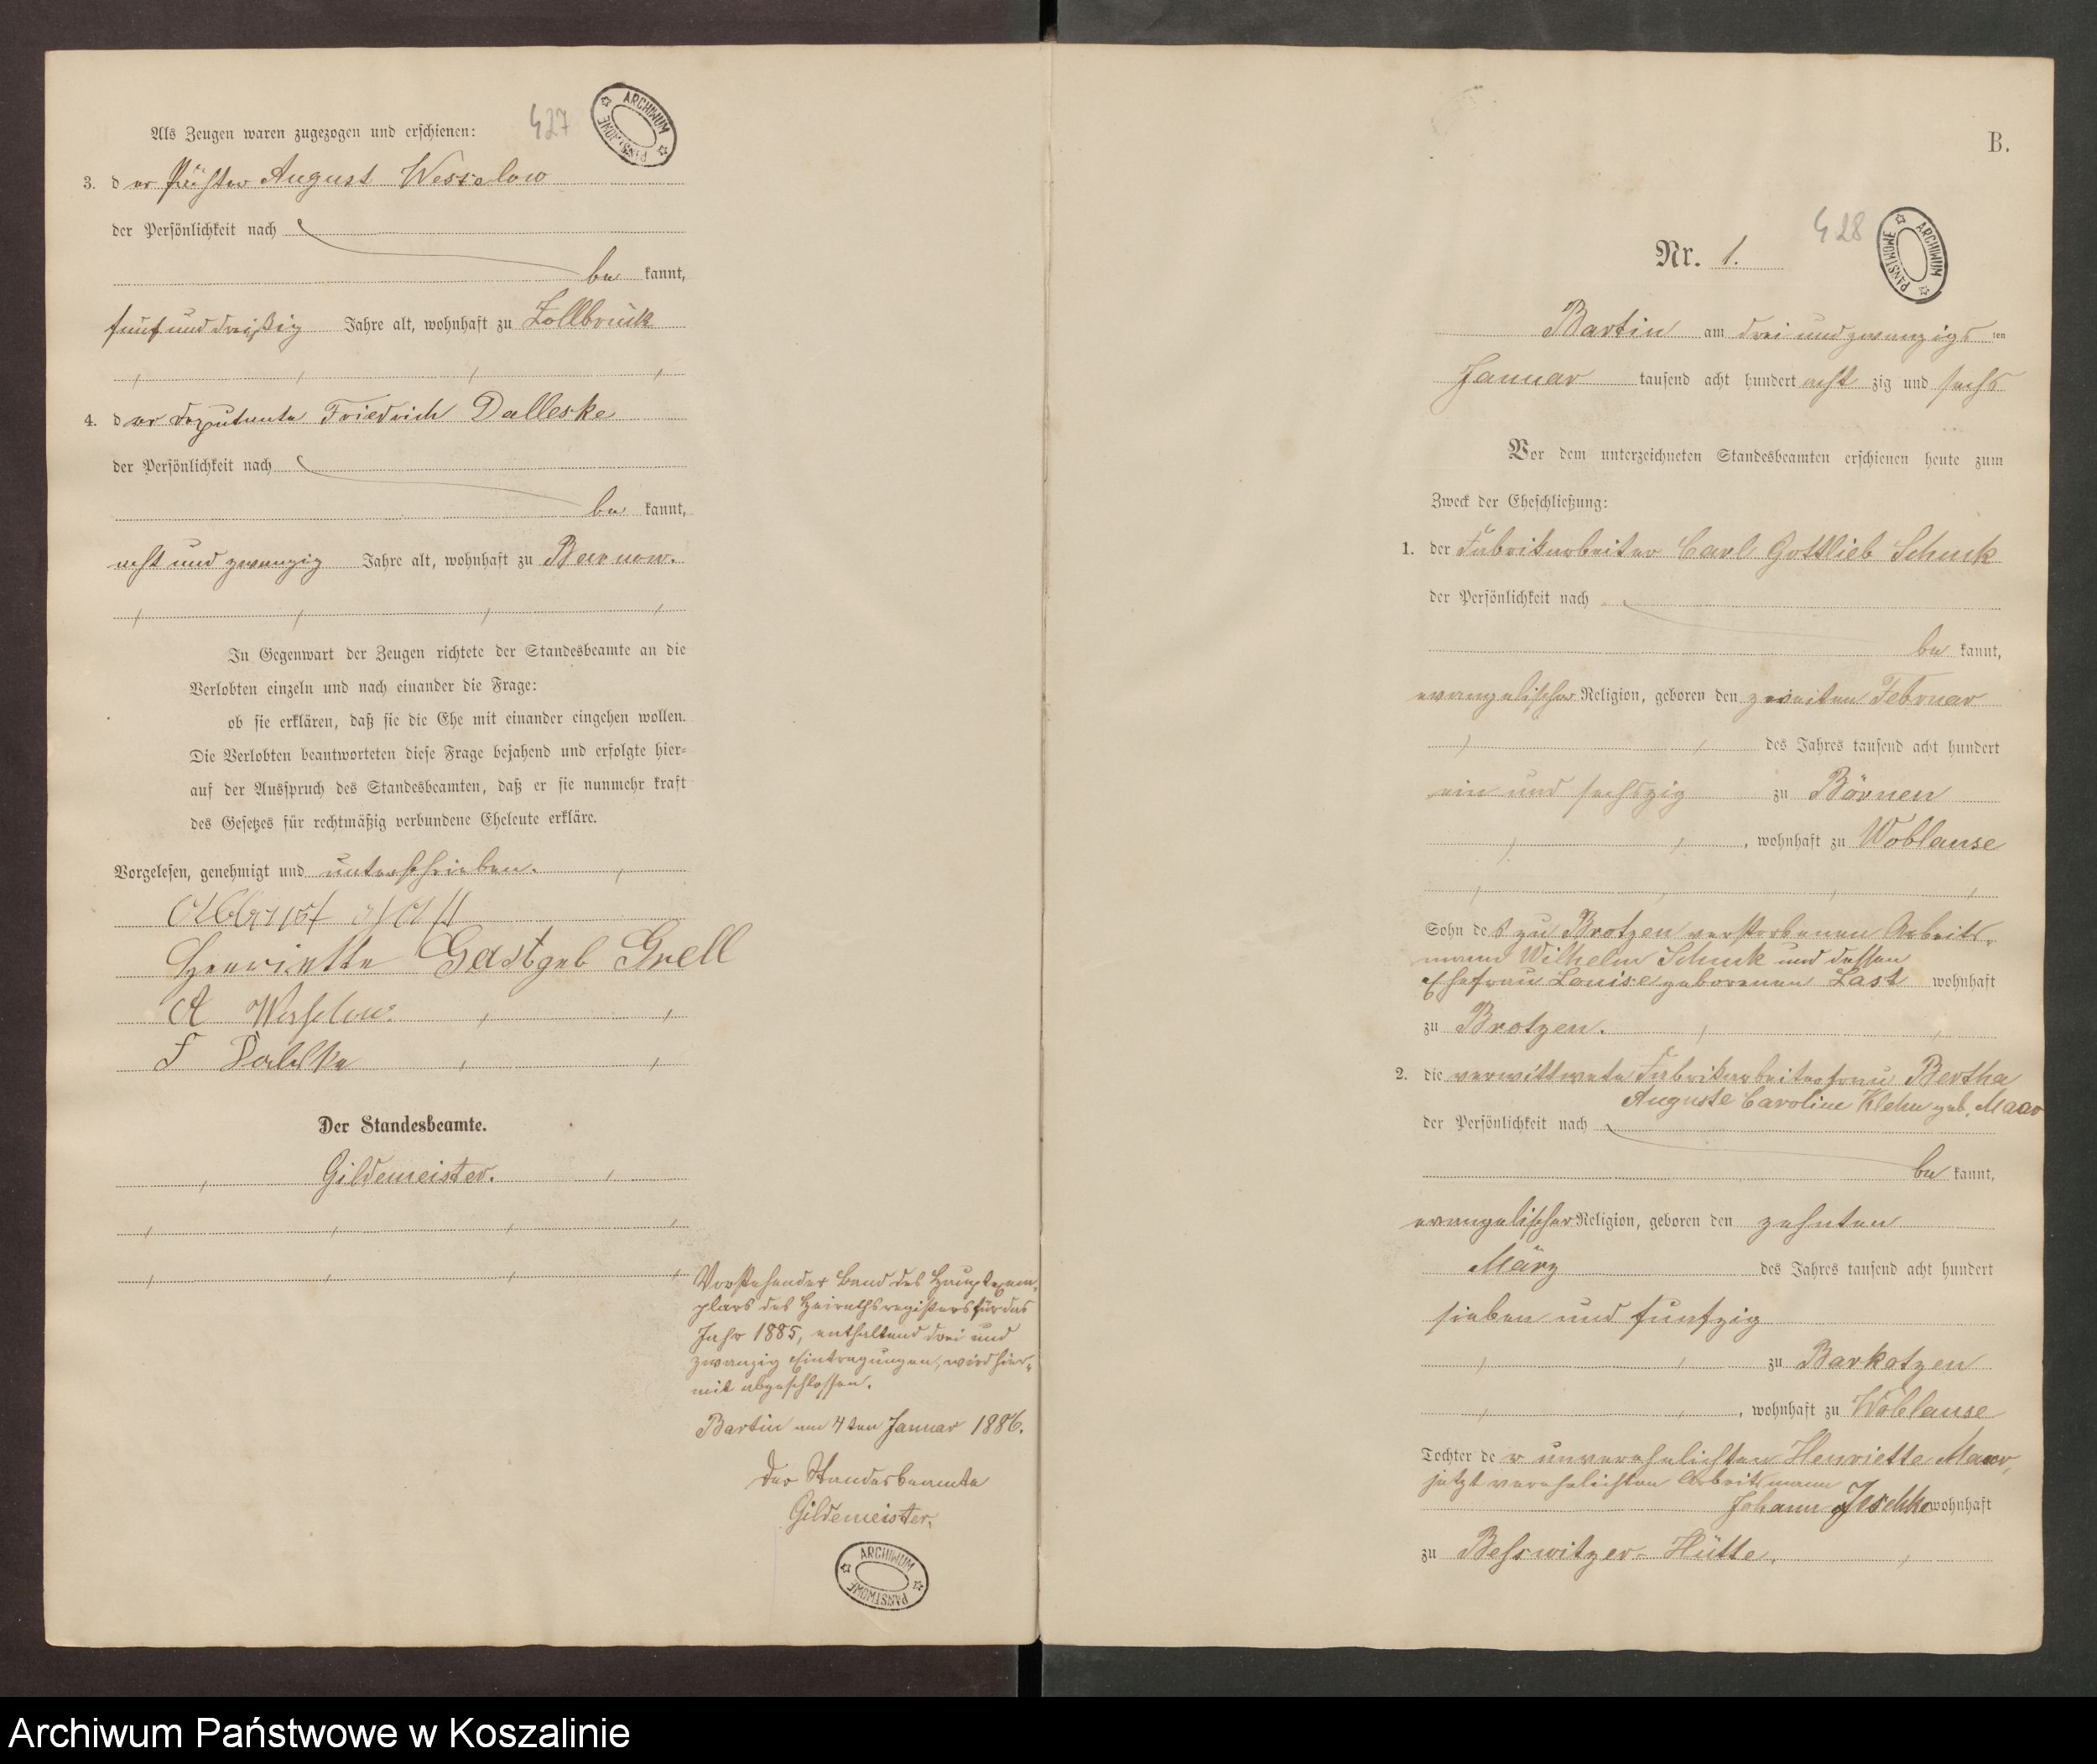 427
ARCHIWUM PAŃSTWOWE
Als Zeugen waren zugezogen und erschienen:
3. der August Wesselow
der Persönlichkeit nach
be kannt,
fünf und dreißig Jahre alt, wohnhaft zu Zollbrück
4. der Deputante Friedrich Dalleske
der Persönlichkeit nach
be kannt,
acht und zwanzig Jahre alt, wohnhaft zu Barnow.
In Gegenwart der Zeugen richtete der Standesbeamte an die
Verlobten einzeln und nach einander die Frage:
ob sie erklären, daß sie die Ehe mit einander eingehen wollen.
Die Verlobten beantworteten diese Frage bejahend und erfolgte hier-
auf der Ausspruch des Standesbeamten, daß er sie nunmehr kraft
des Gesetzes für rechtmäßig verbundene Eheleute erkläre.
Vorgelesen, genehmigt und unterschrieben.
Henriette Gast geb Grell
A Wesselow
F Daleske
Der Standesbeamte.
Gildemeister.
Vorstehender Band des Hauptexem-
plars des Heirathsregisters für das
Jahr 1885, enthaltend drei und
zwanzig Eintragungen, wird hier-
mit abgeschlossen.
Bartin am 4ten Januar 1886.
Der Standesbeamte
Gildemeister.
ARCHIWUM PAŃSTWOWE
B.
428
ARCHIWUM PAŃSTWOWE
Nr. 1.
Bartin am drei und zwanzigsten
Januar tausend acht hundert acht zig und sechs
Vor dem unterzeichneten Standesbeamten erschienen heute zum
Zweck der Eheschließung:
1. der Fabrikarbeiter Carl Gottlieb Schuk
der Persönlichkeit nach
be kannt,
evangelischer Religion, geboren den zweiten Februar
des Jahres tausend acht hundert
ein und sechszig zu Börnen
, wohnhaft zu Woblanse
Sohn des zu Brotzen verstorbenen Arbeits-
mann Wilhelm Schuk und dessen
Ehefrau Louise geborenen Last wohnhaft
zu Brotzen.
2. die verwittwete Fabrikarbeiterfrau Bertha
Auguste Caroline Klehn geb. Maar
der Persönlichkeit nach
be kannt,
evangelischer Religion, geboren den zehnten
März des Jahres tausend acht hundert
sieben und funfzig
zu Barkotzen
, wohnhaft zu Woblanse
Tochter der unverehelichten Henriette Maar,
jetzt verehelichten Arbeitsmann
Johann Jeschke wohnhaft
zu Besswitzer-Hütte.
Archiwum Państwowe w Koszalinie